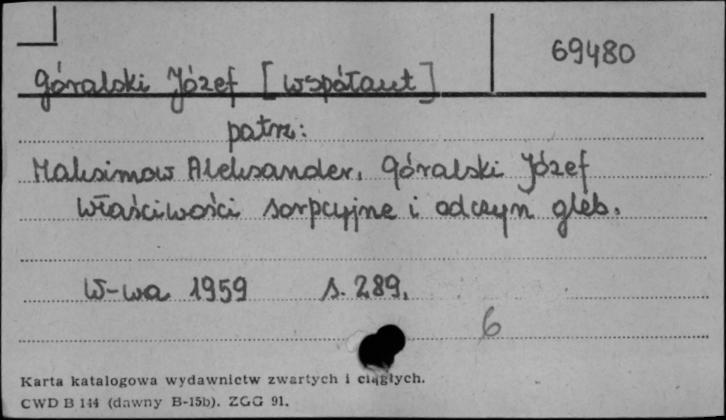 69480
Góralski Józef [współaut]
patrz:
Maksimow Aleksander, Góralski Józef
Właściwości sorpcyjne i odczyn gleb.
W-wa 1959 s. 289.
6
Karta katalogowa wydawnictw zwartych i ciągłych.
CWD B 144 (dawny B-15b). ZGG 91.